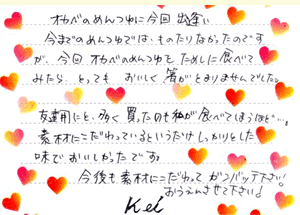 オカベのめんつゆに今回 出逢い
今までのめんつゆでは、ものたりなかったのです
が、今回 オカベのめんつゆを ためしに 食べて
みたら、とっても おいしく 箸が とまりませんでした。
友達用にと、多く 買ったのも 私が 食べてしまうほど…。
素材にこだわっているというだけ しっかりとした
味で おいしかったです。
今後も素材にこだわって ガンバッテ下さい!
おうえんさせて下さい!
Kei